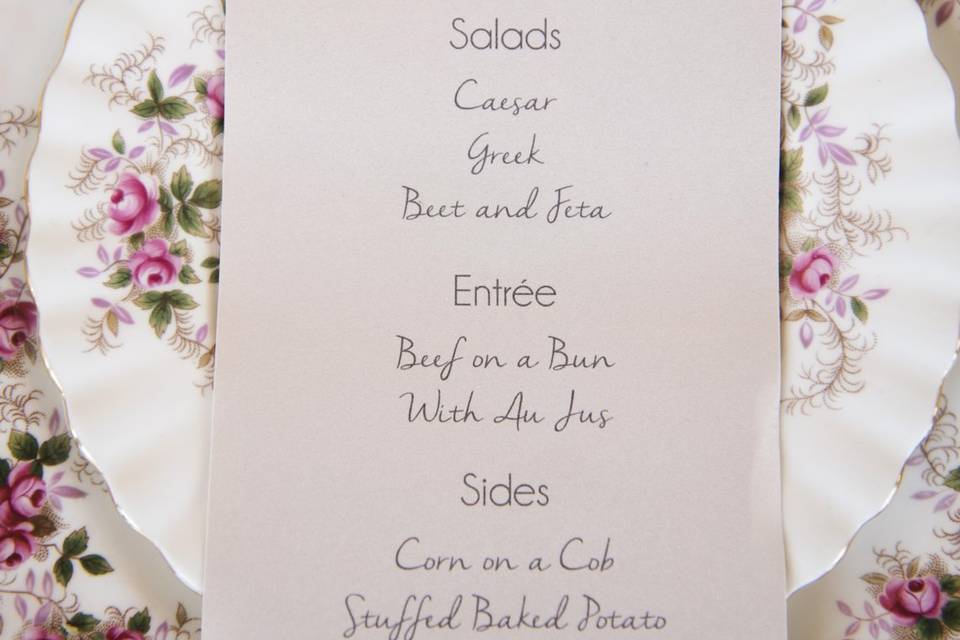 Salads
Caesar
Greek
Beet and Feta
Entrée
Beef on a Bun
With Au Jus
Sides
Corn on a Cob
Stuffed Baked Potato